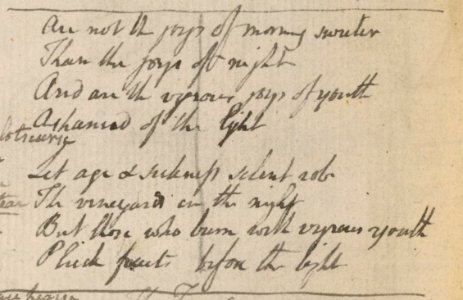 Are not the joys of morning sweeter
Than the joys of night
And are the vigrous joys of youth
Ashamed of the light
Let age & sickness silent rob
The vineyards in the night
But those who burn with vigrous youth
Pluck fruits before the light